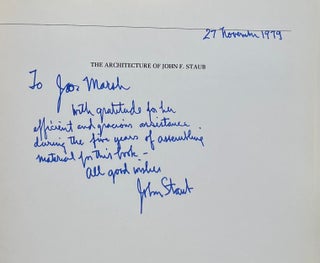 27 November 1979
THE ARCHITECTURE OF JOHN F. STAUB
To Marsh
With gratitude for her
efficient and gracious assistance
during the five years of assembling
material for this book –
All good wishes
John Staub